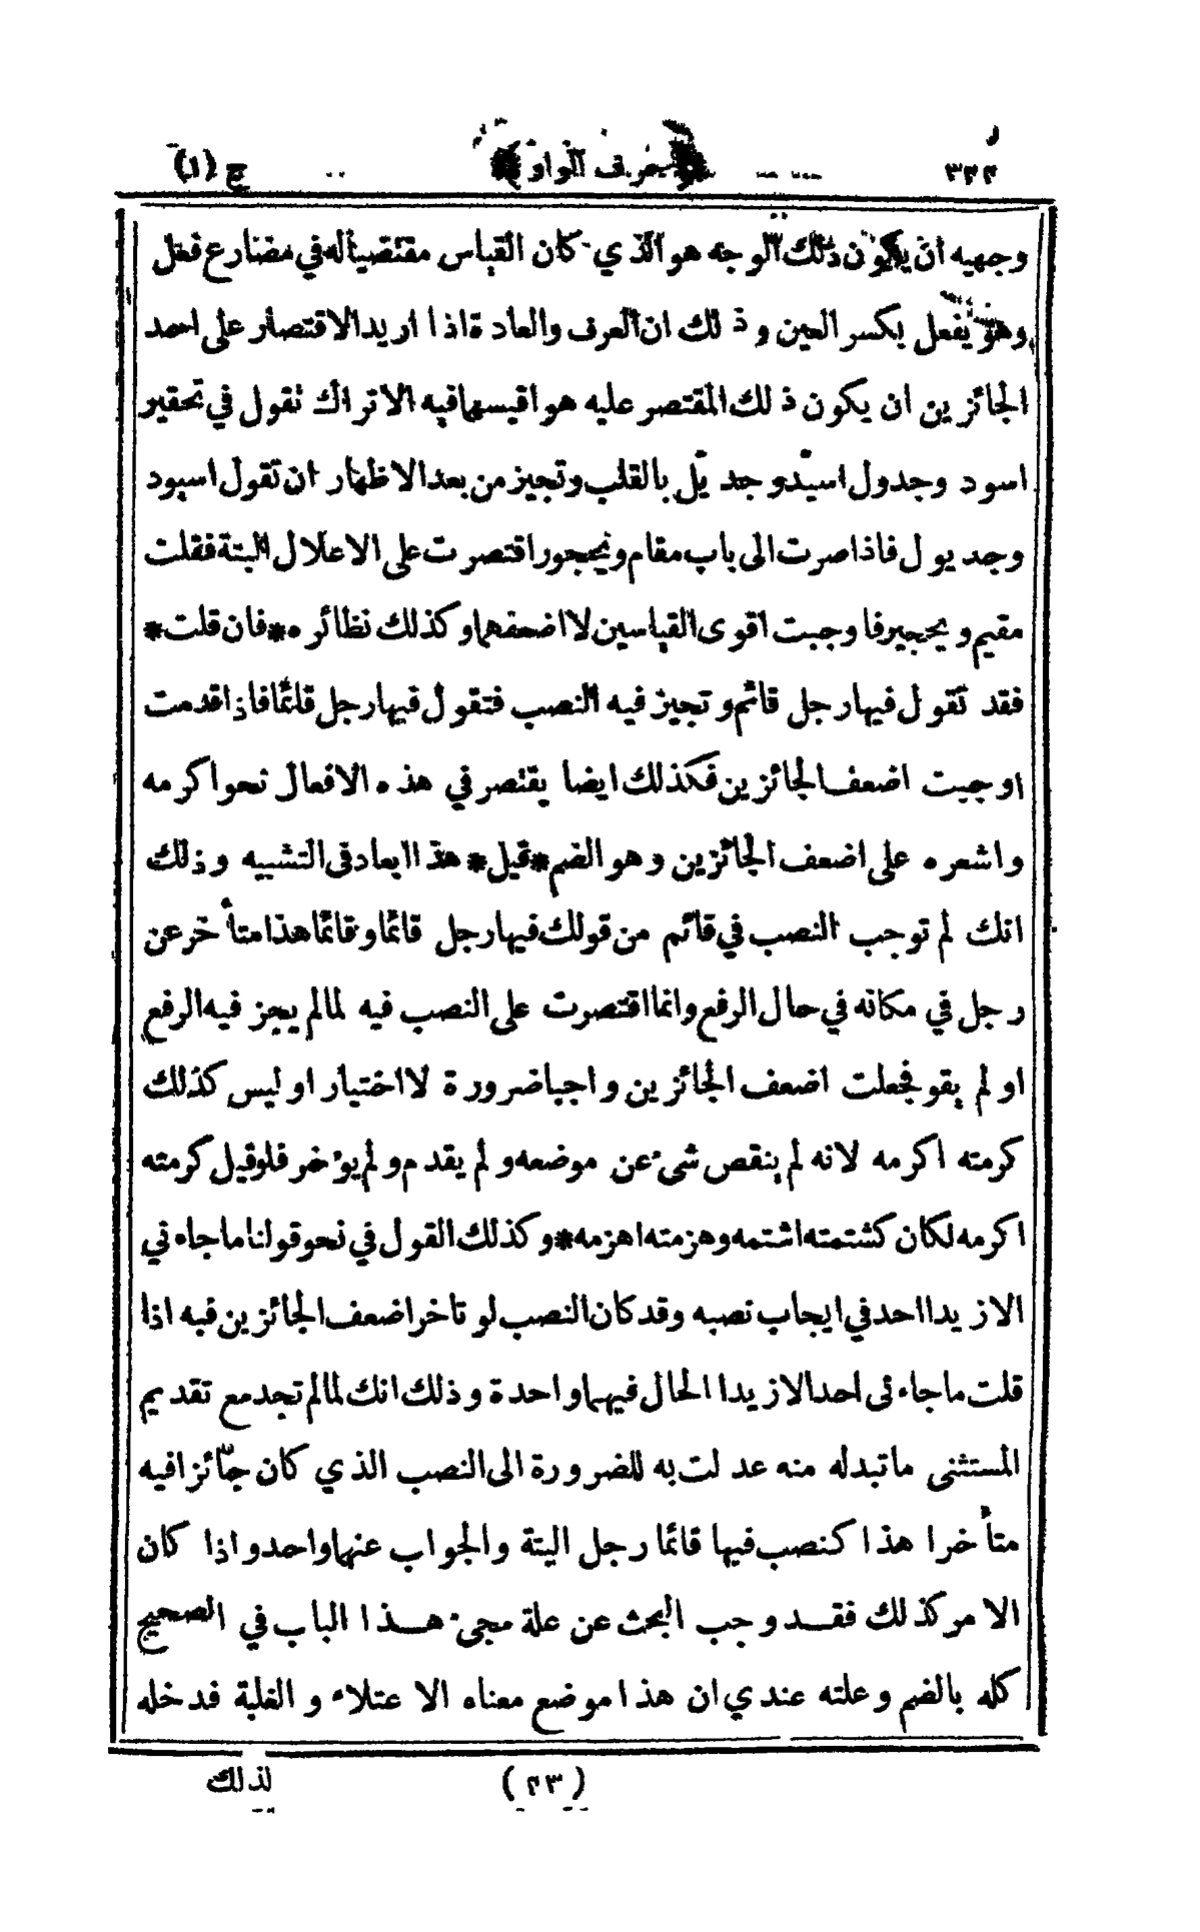 ٣٣٢ حرف الواو ج (١)
وجهيه ان يكون ذلك الوجه هو الذي كان القياس مقتضياله في مضارع فعل
وهو يفعل بكسر العين وذلك ان العرف والعادة اذا اريد الاقتصار على احد
الجائزين ان يكون ذلك المقتصر عليه هو اقيسهما فيه الا تراك تقول في تحقير
اسود وجدول اسيّد وجديّل بالقلب وتجيز من بعد الاظهار ان تقول اسيود
وجديول فاذا صرت الى باب مقام ويحجور اقتصرت على الاعلال البتة فقلت
مقيم ويحيجير فاوجبت اقوى القياسين لا اضعفهما وكذلك نظائره * فان قلت *
فقد تقول فيها رجل قائم وتجيز فيه النصب فتقول فيها رجل قائما فاذا قدمت
اوجبت اضعف الجائزين فكذلك ايضا يقتصر في هذه الافعال نحو اكرمه
واشعره على اضعف الجائزين وهو الضم * قيل * هذا ابعاد في التشبيه وذلك
انك لم توجب النصب في قائم من قولك فيها رجل قائما وقائما هذا متأخر عن
رجل في مكانه في حال الرفع وانما اقتصرت على النصب فيه لما لم يجز فيه الرفع
او لم يقو فجعلت اضعف الجائزين واجبا ضرورة لا اختيار او ليس كذلك
كرمته اكرمه لانه لم ينقص شئ عن موضعه ولم يقدم ولم يؤخر فلو قيل كرمته
اكرمه لكان كشتمته اشتمه وهزمته اهزمه * وكذلك القول في نحو قولنا ما جاءني
الا زيدا احد في ايجاب نصبه وقد كان النصب لو تاخر اضعف الجائزين فيه اذا
قلت ما جاءنى احد الا زيدا الحال فيهما واحدة وذلك انك لما لم تجد مع تقديم
المستثنى ما تبدله منه عدلت به للضرورة الى النصب الذي كان جائزا فيه
متأخرا هذا كنصب فيها قائما رجل البتة والجواب عنهما واحد واذا كان
الامر كذلك فقد وجب البحث عن علة مجئ هذا الباب في الصحيح
كله بالضم وعلته عندي ان هذا موضع معناه الاعتلاء والغلبة فدخله
(٤٣) لذلك